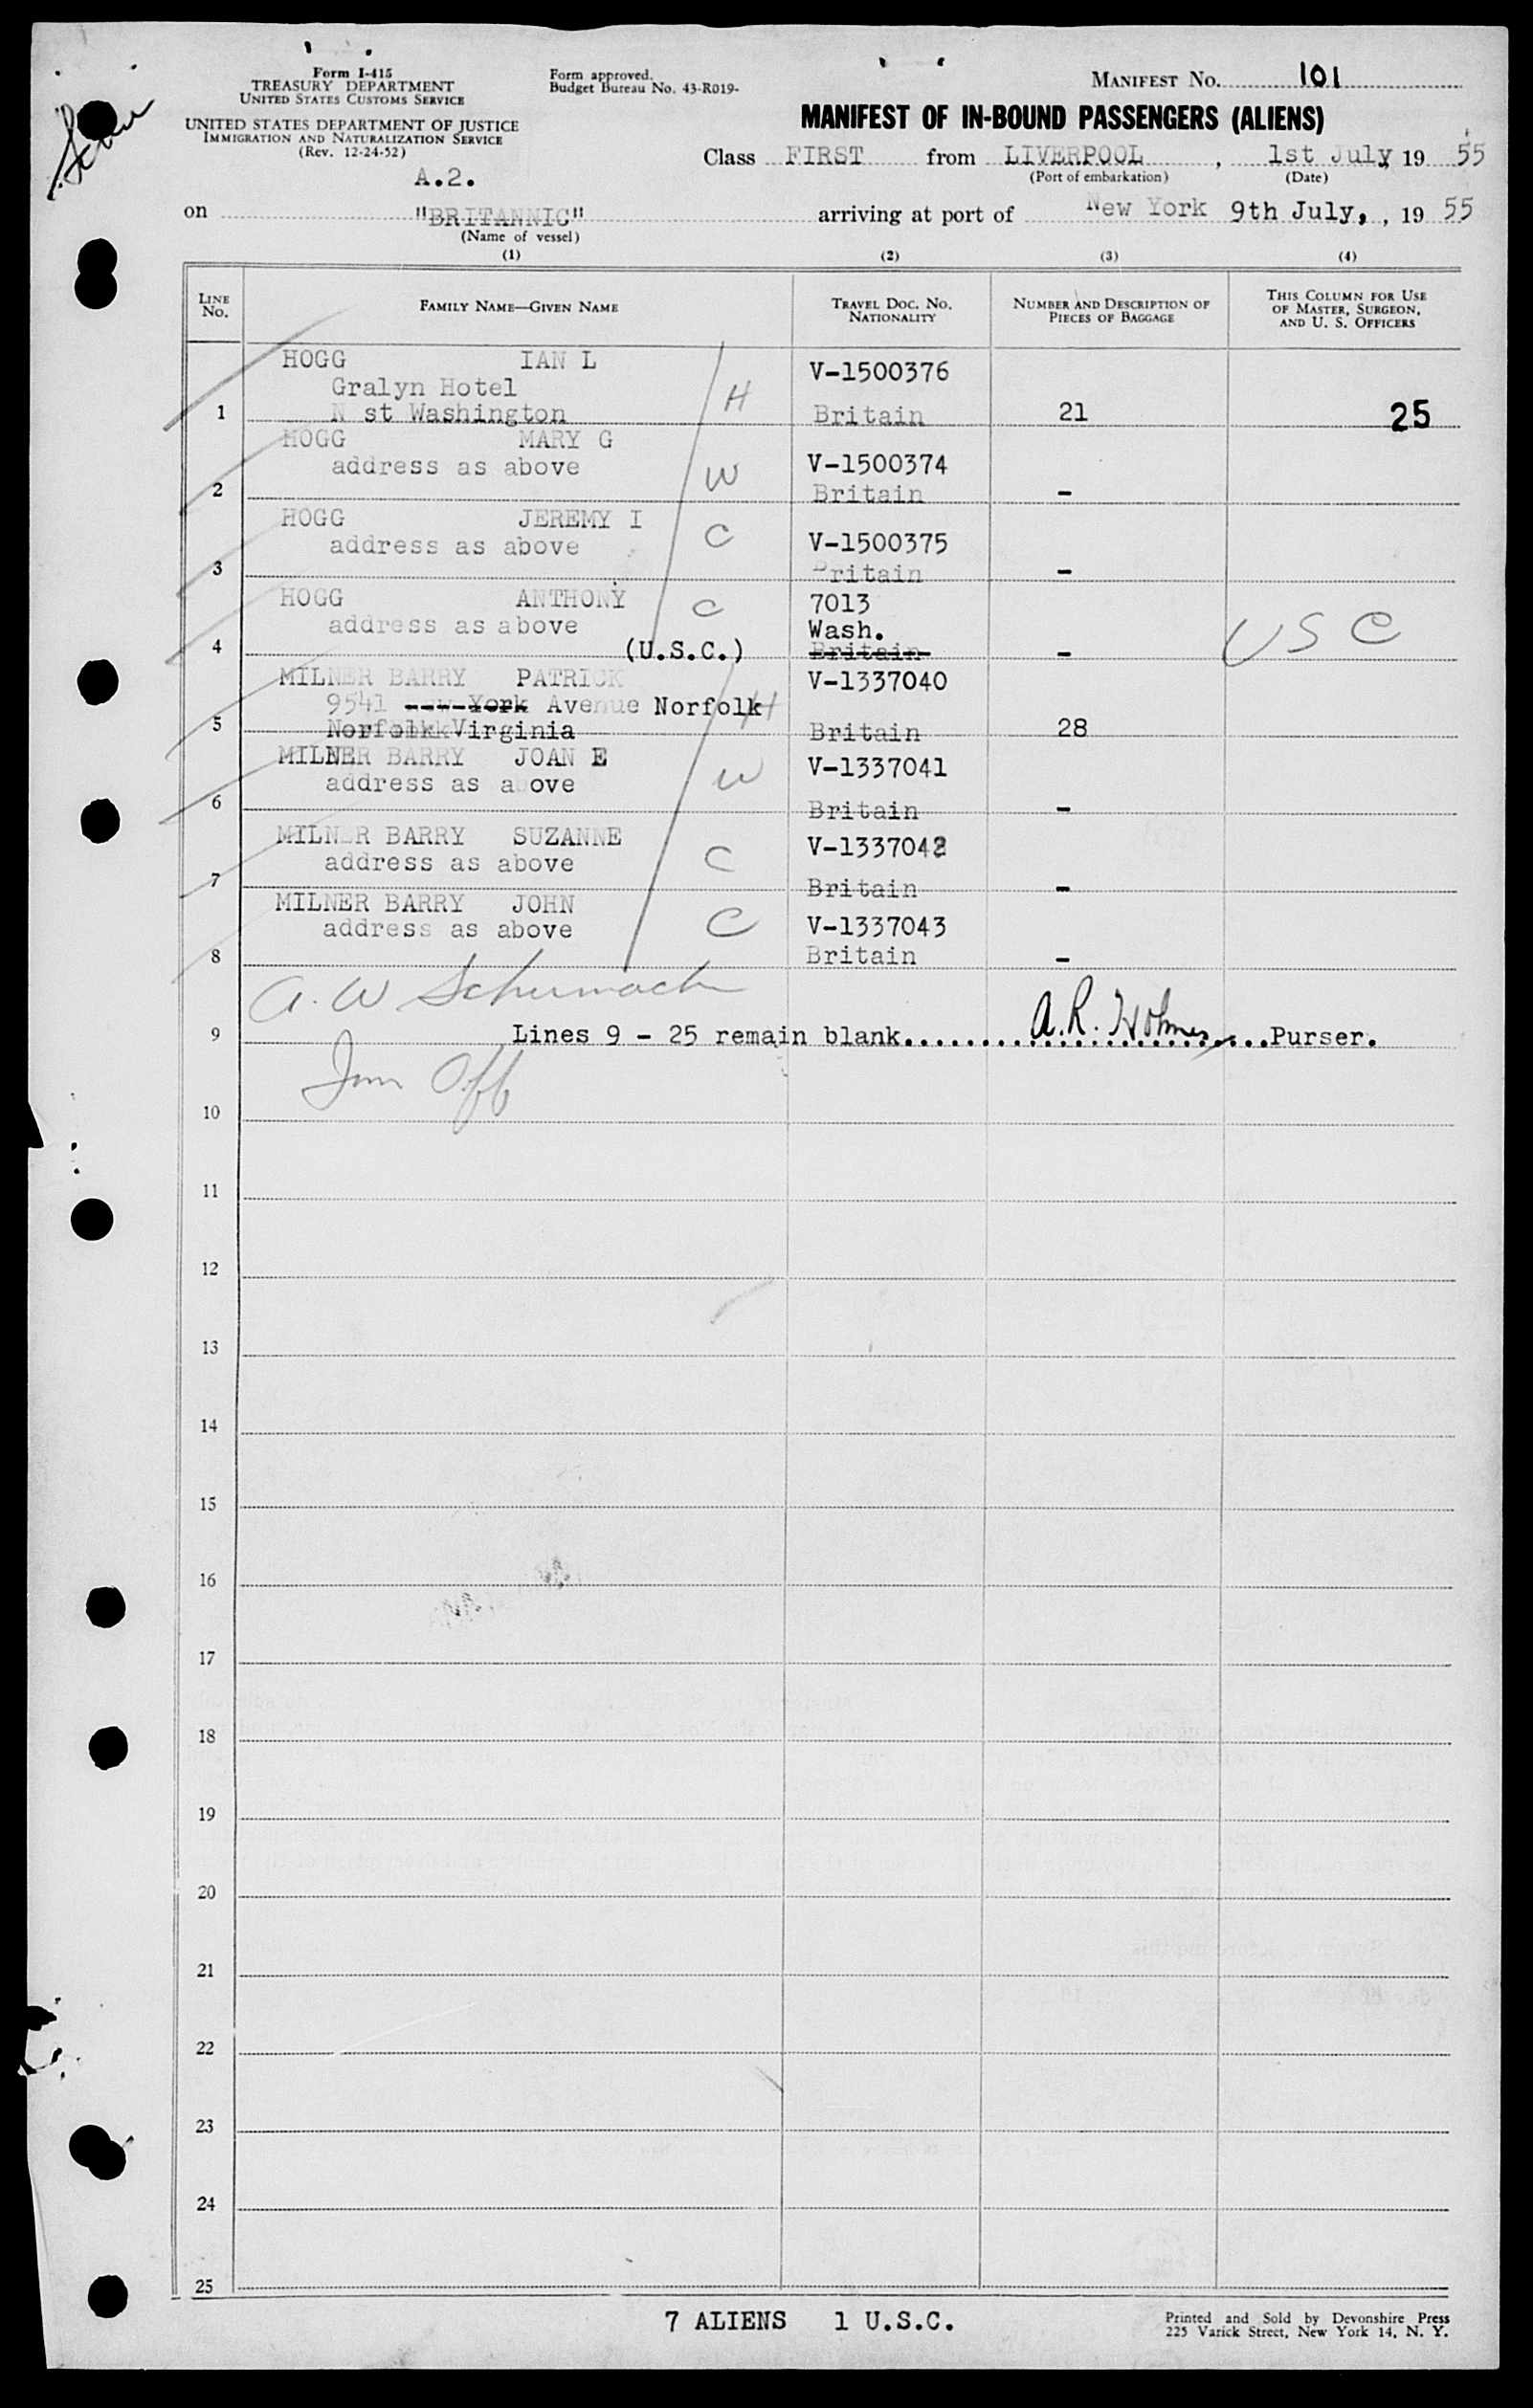 Form I-415
TREASURY DEPARTMENT
UNITED STATES CUSTOMS SERVICE
UNITED STATES DEPARTMENT OF JUSTICE
IMMIGRATION AND NATURALIZATION SERVICE
(Rev. 12-24-52)
A.2.
Form approved.
Budget Bureau No. 43-R019-
MANIFEST No. 101
MANIFEST OF IN-BOUND PASSENGERS (ALIENS)
Class FIRST from LIVERPOOL, 1st July, 19 55
(Port of embarkation) (Date)
on "BRITANNIC" arriving at port of New York 9th July, , 19 55
(Name of vessel)
(1) (2) (3) (4)
LINE No. FAMILY NAME—GIVEN NAME TRAVEL DOC. NO. NATIONALITY NUMBER AND DESCRIPTION OF PIECES OF BAGGAGE THIS COLUMN FOR USE OF MASTER, SURGEON, AND U. S. OFFICERS
HOGG IAN L V-1500376
Gralyn Hotel H
1 N st Washington Britain 21 25
HOGG MARY G
address as above W V-1500374
2 Britain -
HOGG JEREMY I C
address as above V-1500375
3 Britain -
HOGG ANTHONY C 7013
address as above Wash. U S C
4 (U.S.C.) Britain -
MILNER BARRY PATRICK V-1337040
9541 New York Avenue Norfolk H
5 Norfolkk Virginia Britain 28
MILNER BARRY JOAN E V-1337041
address as above W
6 Britain -
MILNER BARRY SUZANNE V-1337042
address as above C
7 Britain -
MILNER BARRY JOHN C
address as above V-1337043
8 Britain -
A. W Schumach
9 Lines 9 - 25 remain blank. A.R. Holmes Purser.
Imm Off
10
11
12
13
14
15
16
17
18
19
20
21
22
23
24
25
7 ALIENS 1 U.S.C.
Printed and Sold by Devonshire Press
225 Varick Street, New York 14, N. Y.